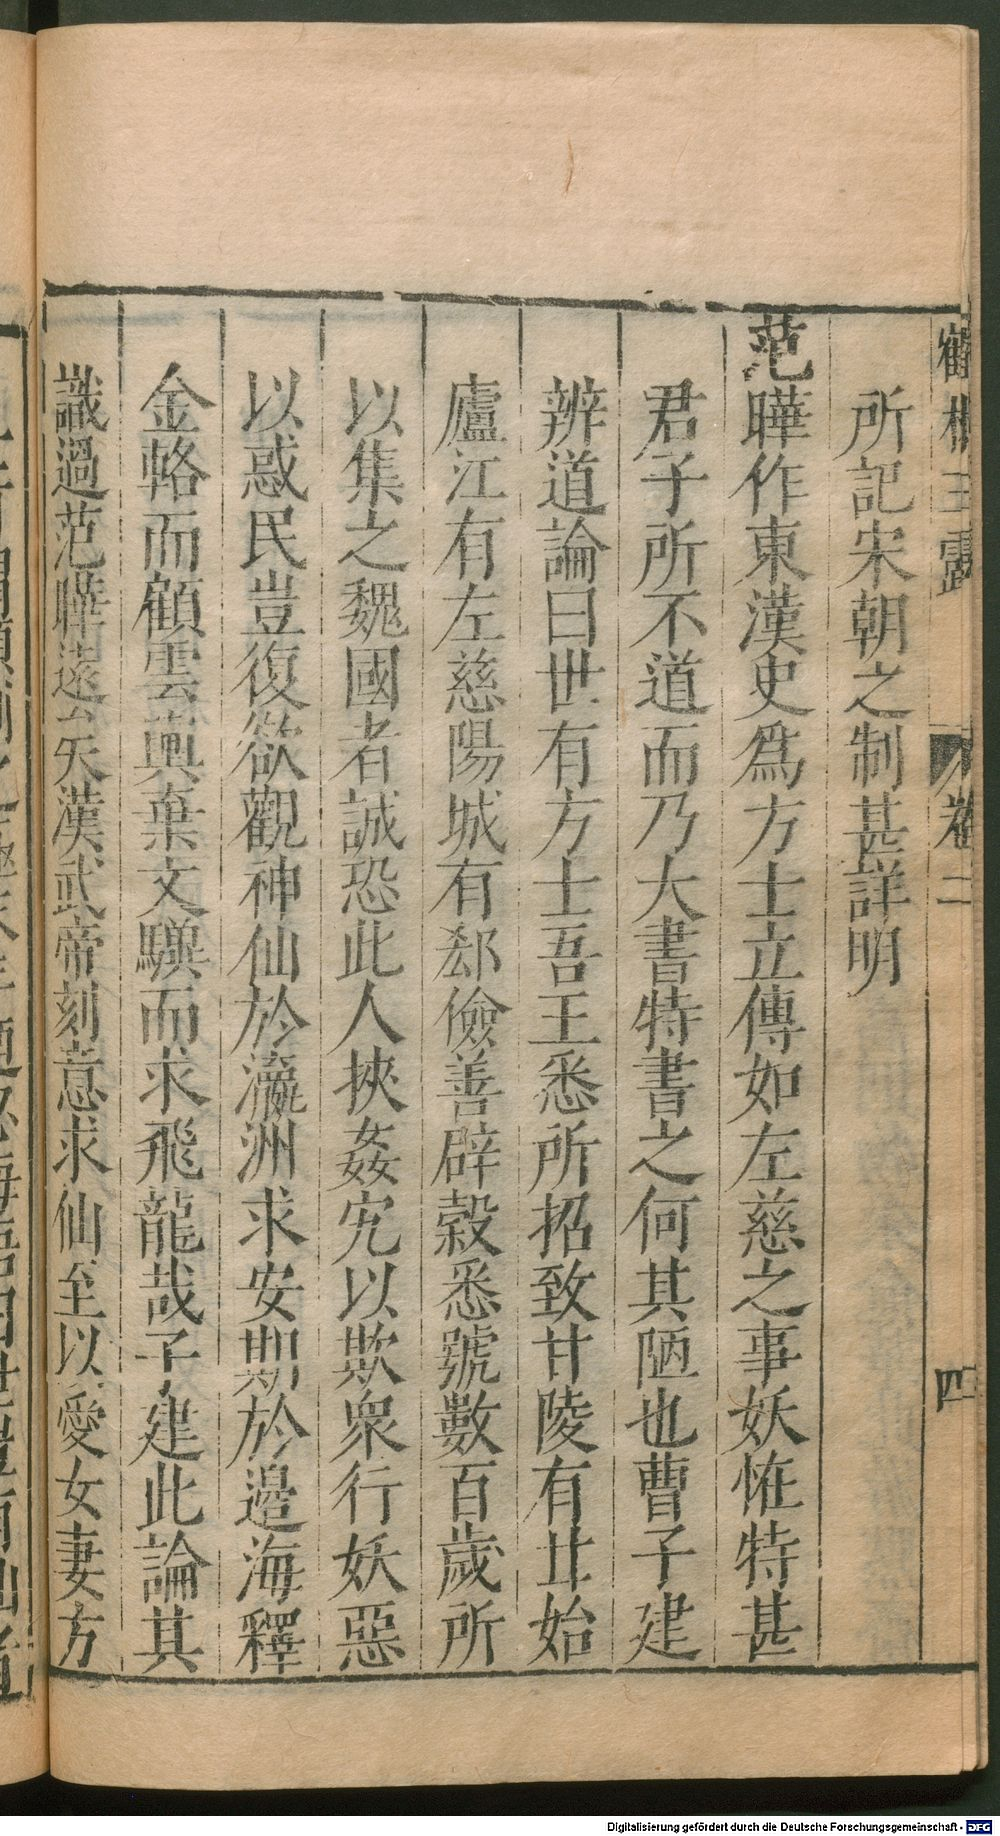 鶴林玉露
卷二
四
所記宋朝之制甚詳明
范曄作東漢史爲方士立傳如左慈之事妖恠特甚
君子所不道而乃大書特書之何其陋也曹子建
辨道論曰世有方士吾王悉所招致甘陵有甘始
廬江有左慈陽城有郄儉善辟穀悉號數百歲所
以集之魏國者誠恐此人挾姦宄以欺衆行妖惡
以惑民豈復欲觀神仙於瀛洲求安期於邊海釋
金輅而顧雲輿棄文驥而求飛龍哉子建此論其
識過范曄遠矣漢武帝刻意求仙至以愛女妻方
Digitalisierung gefördert durch die Deutsche Forschungsgemeinschaft - DFG